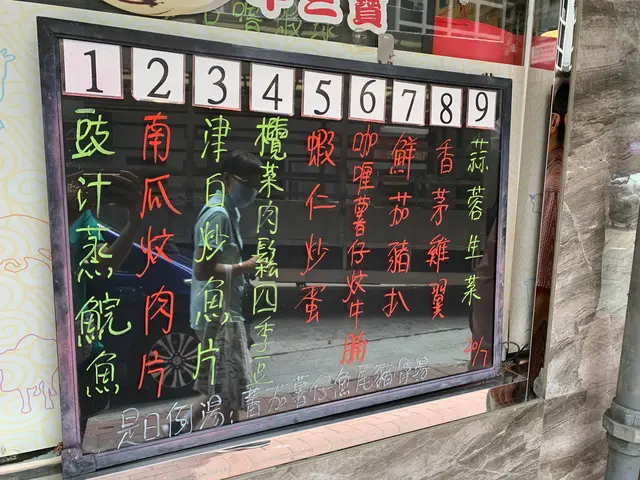 1 2 3 4 5 6 7 8 9
豉汁蒸鯇魚
南瓜炆肉片
津白炒魚片
欖菜肉鬆四季豆
蝦仁炒蛋
咖喱薯仔炆牛腩
鮮茄豬扒
香茅雞翼
蒜蓉生菜
20/7
是日例湯：蕃茄薯仔魚尾豬骨湯